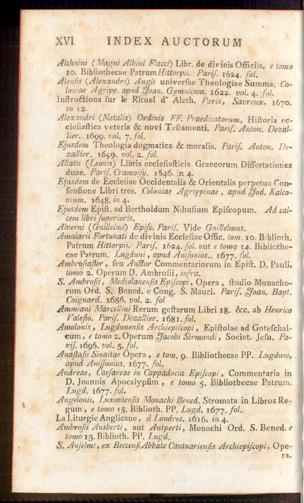 XVI INDEX AUCTORUM
Alchuini (Magni Albini Flacci) Libr. de divinis Officiis, e tomo
10. Bibliothecae Patrum Hittorpii. Paris. 1624. fol.
Alensis (Alexandri) Angli universae Theologiae Summa. Co-
loniae Agripp. apud Joan. Gymnicum. 1622. vol. 4. fol.
Instructions sur le Rituel d' Aleth. Paris, Savreux. 1670.
in 12.
Alexandri (Natalis) Ordinis FF. Praedicatorum, Historia ec-
clesiastica veteris & novi Testamenti. Paris. Anton. Dezal-
lier. 1699. vol. 7. fol.
Ejusdem Theologia dogmatica & moralis. Paris. Anton. De-
zallier. 1699. vol. 2. fol.
Allatii (Leonis) Libris ecclesiasticis Graecorum Dissertationes
duae. Paris. Cramoisy. 1646. in 4.
Ejusdem de Ecclesiae Occidentalis & Orientalis perpetua Con-
sensione Libri tres. Coloniae Agrippinae, apud Jod. Kalco-
vium. 1648. in 4.
Ejusdem Epist. ad Bertholdum Nihusium Episcopum. Ad cal-
cem libri superioris.
Alverni (Guillelmi) Episc. Paris. Vide Guillelmus.
Amalarii Fortunati de divinis Ecclesiae Offic. tom. 10. Biblioth.
Patrum Hittorpii. Paris. 1624. fol. aut e tomo 14. Bibliothe-
cae Patrum. Lugduni, apud Anissonios. 1677. fol.
Ambrosiaster, seu Auctor Commentariorum in Epist. D. Pauli,
tomo 2. Operum D. Ambrosii, infra.
S. Ambrosii, Mediolanensis Episcopi, Opera, studio Monacho-
rum Ord. S. Bened. e Cong. S. Mauri. Paris. Joan. Bapt.
Coignard. 1686. vol. 2. fol
Ammiani Marcellini Rerum gestarum Libri 18. &c. ab Henrico
Valesio. Paris. Dezallier, 1681. fol.
Amolonis, Lugdunensis Archiepiscopi, Epistolae ad Gotefchal-
cum, e tomo 2. Operum Jacobi Sirmondi, Societ. Jesu. Pa-
ris. 1696. vol. 5. fol.
Anastasii Sinaitae Opera, e tom. 9. Bibliothecae PP. Lugduni,
apud Anissonios. 1677. fol.
Andreae, Caesareae in Cappadocia Episcopi, Commentaria in
D. Joannis Apocalypsim, e tomo 5. Bibliothecae Patrum.
Lugd. 1677. fol.
Angelomi, Luxoviensis Monachi Bened. Stromata in Libros Re-
gum, e tomo 15. Biblioth. PP. Lugd. 1677. fol.
La Liturgie Anglicane, à Londres. 1616. in 4.
Ambrosii Ausberti, aut Autperti, Monachi Ord. S. Bened. e
tomo 13. Biblioth. PP. Lugd.
S. Anselmi, ex Beccensi Abbate Cantuariensis Archiepiscopi, Ope-
ra,